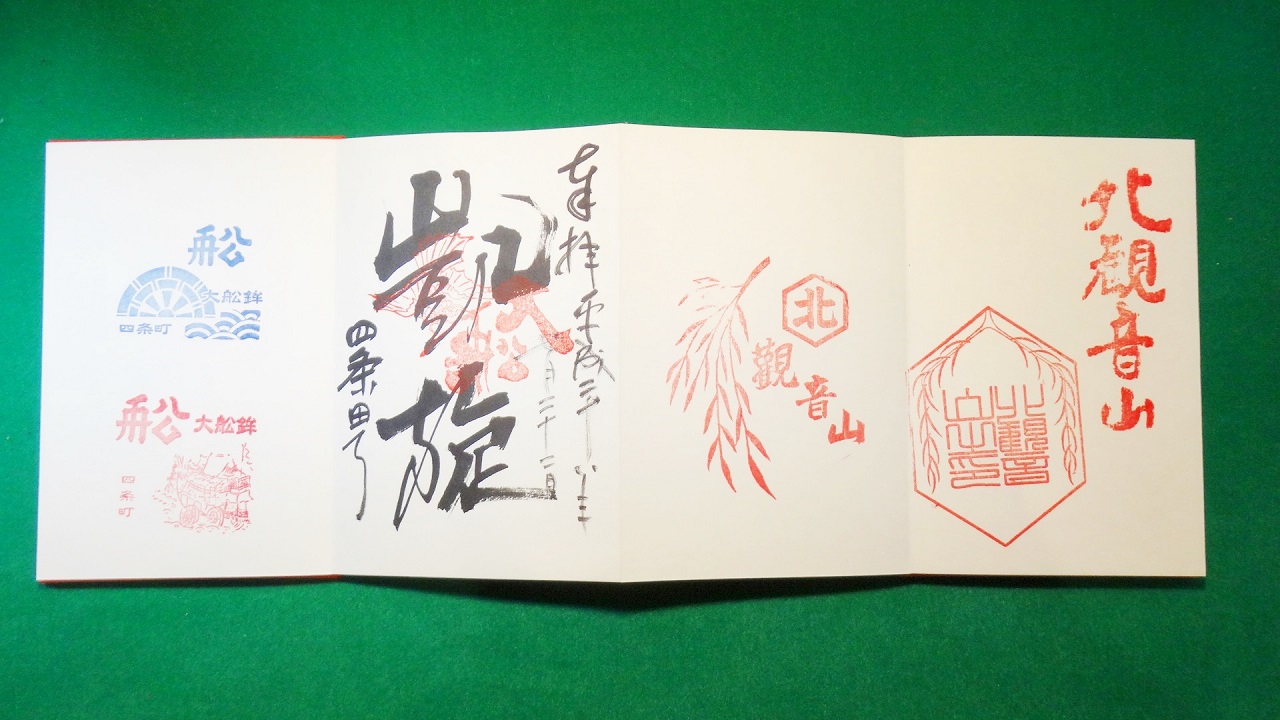 北観音山
北観音山之印
北
觀音山
奉拝 平成二十
七月二十二日
凱旋
四条町
舩
大舩鉾
四条町
舩 大舩鉾
四条町